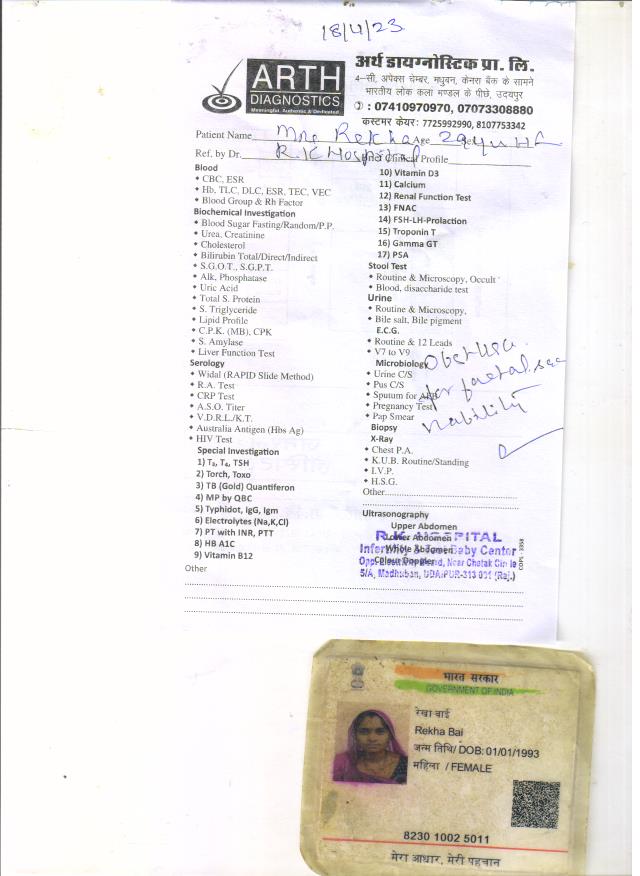 18/4/23
ARTH
DIAGNOSTICS
Meaningful, Authentic & Dedicated
अर्थ डायग्नोस्टिक प्रा. लि.
4-सी, अपेक्स चेम्बर, मधुबन, केनरा बैंक के सामने
भारतीय लोक कला मण्डल के पीछे, उदयपुर
: 07410970970, 07073308880
कस्टमर केयर: 7725992990, 8107753342
Patient Name Mrs Rekha Age 29
Ref. by Dr. R.K Hospital Clinical Profile
Blood
CBC, ESR
Hb, TLC, DLC, ESR, TEC, VEC
Blood Group & Rh Factor
Biochemical Investigation
Blood Sugar Fasting/Random/P.P.
Urea, Creatinine
Cholesterol
Bilirubin Total/Direct/Indirect
S.G.O.T., S.G.P.T.
Alk, Phosphatase
Uric Acid
Total S. Protein
S. Triglyceride
Lipid Profile
C.P.K. (MB), CPK
S. Amylase
Liver Function Test
Serology
Widal (RAPID Slide Method)
R.A. Test
CRP Test
A.S.O. Titer
V.D.R.L./K.T.
Australia Antigen (Hbs Ag)
HIV Test
Special Investigation
1) T₃, T₄, TSH
2) Torch, Toxo
3) TB (Gold) Quantiferon
4) MP by QBC
5) Typhidot, IgG, Igm
6) Electrolytes (Na,K,Cl)
7) PT with INR, PTT
8) HB A1C
9) Vitamin B12
Other
10) Vitamin D3
11) Calcium
12) Renal Function Test
13) FNAC
14) FSH-LH-Prolaction
15) Troponin T
16) Gamma GT
17) PSA
Stool Test
Routine & Microscopy, Occult
Blood, disaccharide test
Urine
Routine & Microscopy,
Bile salt, Bile pigment
E.C.G.
Routine & 12 Leads
V7 to V9
Microbiology
Urine C/S
Pus C/S
Sputum for AFB
Pregnancy Test
Pap Smear
Biopsy
X-Ray
Chest P.A.
K.U.B. Routine/Standing
I.V.P.
H.S.G.
Other
for
Ultrasonography
Upper Abdomen
Lower Abdomen
Whole Abdomen
Colour Doppler
R.K. HOSPITAL
Infertility & Test Baby Center
Near Chetak Circle
5/A, Madhuban, UDAIPUR-313 001 (Raj.)
COPL - 3358
भारत सरकार
GOVERNMENT OF INDIA
रेखा बाई
Rekha Bai
जन्म तिथि/ DOB: 01/01/1993
महिला / FEMALE
8230 1002 5011
मेरा आधार, मेरी पहचान